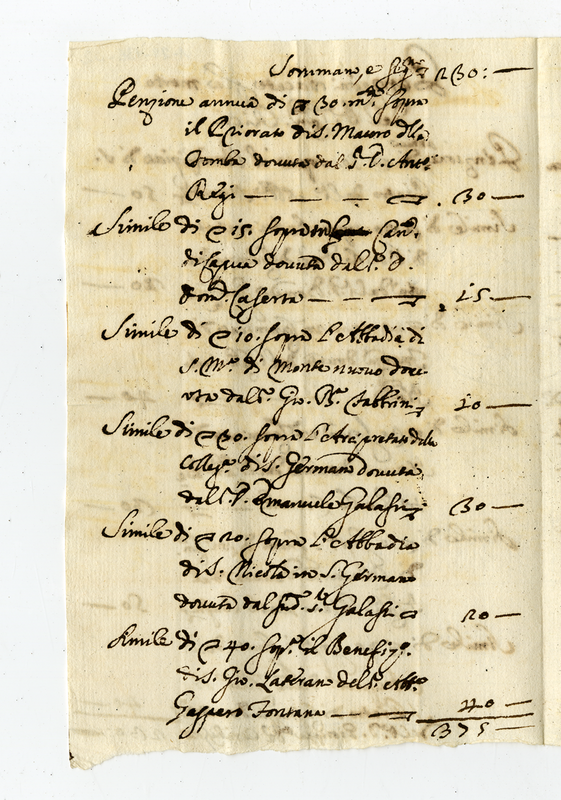 Sommano, e seg.no 230: —
Penzione annua di ▽ 30. m.ta sopra
il Priorato di S. Mauro d.la
Tomba dovuta dal S. D. Ant.o
Regi — — — — 30 —
Simile di ▽ 15. sopra un Can.
di Capua dovuta dal S. D.
Dom. Caserta — — — 15 —
Simile di ▽ 10. sopra l'Abbadia di
S. M.a di Monte nuovo dov-
uta dal S. Gio. B.a Fabbrini 10 —
Simile di ▽ 30. sopra l'Arcipretato della
Colleg.a di S. Germano dovuta
dal S. D. Emanuele Galassi 30 —
Simile di ▽ 20. sopra l'Abbadia
di S. Nicola in S. Germano
dovuta dal sud. S.r Galassi 20 —
Simile di ▽ 40. sop.a il Benefizo.
di S. Gio. Laterano del S. Abb.e
Gasparo Fontana — — 40 —
375 —